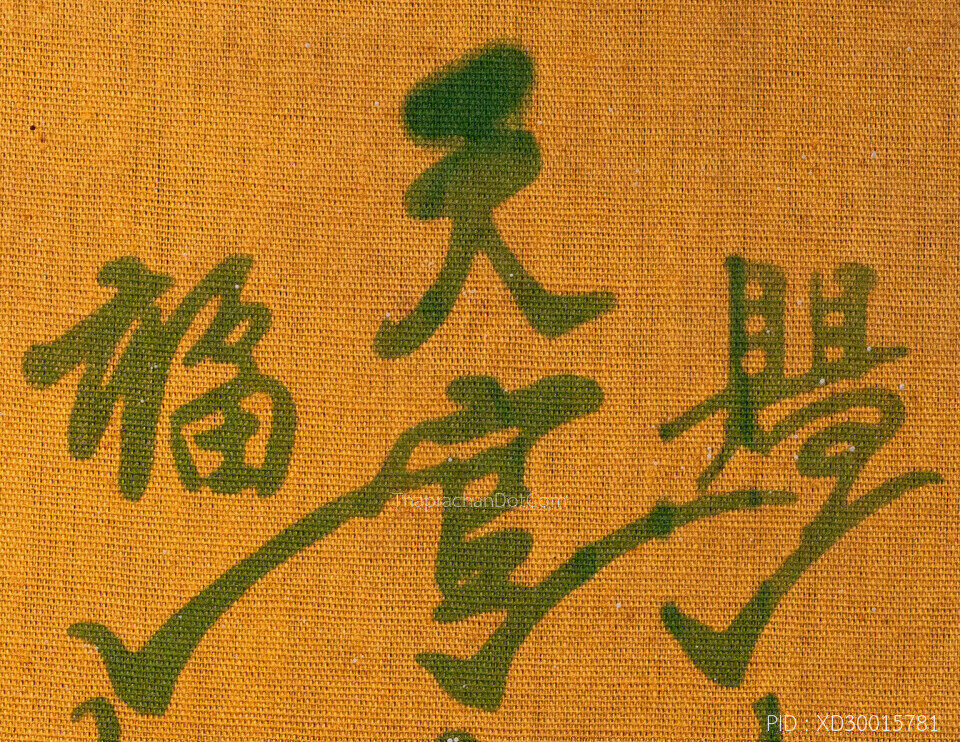 天官
福
ThaprachanDotCom
PID : XD30015781